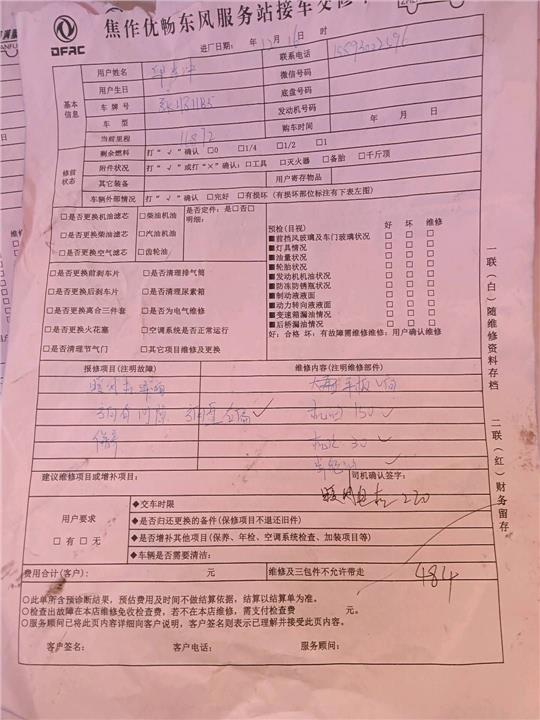 焦作优畅东风服务站接车交修
DFAC
进厂日期： 年 12 月 16 日 时
基本信息
用户姓名 联系电话
用户生日 微信号码
车牌号 底盘号码
车 型 发动机号码
当前里程 11872 购车时间 年 月 日
修前状态
剩余燃料 打“√”确认 □0 □1/4 □1/2 □1
附件状况 打“√”或打“×”确认：□工具 □灭火器 □备胎 □千斤顶
其它装备 用户寄存物品
车辆外部情况 打“√”确认 □完好 □有损坏（有损坏部位标注有下表左图）
□是否更换机油滤芯 □柴油机油 是否定件：是□否□
明细：
□是否更换柴油滤芯 □汽油机油
□是否更换空气滤芯 □齿轮油
□是否更换前刹车片 □是否清理排气筒
□是否更换后刹车片 □是否清理尿素箱
□是否更换离合三件套 □是否为电气维修
□是否更换火花塞 □空调系统是否正常运行
□是否清理节气门 □其它项目维修及更换
预检(目视) 好 坏 维修
■前挡风玻璃及车门玻璃状况 □ □ □
■灯具情况 □ □ □
■油量状况 □ □ □
■轮胎状况 □ □ □
■发动机机油状况 □ □ □
■防冻防锈瓶状况 □ □ □
■制动液液面 □ □ □
■动力转向液液面 □ □ □
■变速箱漏油情况 □ □ □
■后桥漏油情况 □ □ □
好：合格 坏：有故障需维修维修：用户确认维修
报修项目(注明故障) 维修内容(注明维修部件)
保养
机油 150 ✓
机滤 30 ✓
建议维修项目或增补项目： 司机确认签字：
暖风电机 220
用户要求
□有□无
◆交车时限
◆是否归还更换的备件(保修项目不退还旧件)
◆是否增补其他项目(保养、年检、空调系统检查、加装项目等)
◆车辆是否需要清洁：
费用合计(客户)： 元 维修及三包件不允许带走
484
○此单所含预诊断结果，预估费用及时间不做结算依据，结算以结算单为准。
○检查出故障在本店维修免收检查费，若不在本店维修，需支付检查费 元。
○服务顾问已将此页内容详细向客户说明，客户签名则表示已理解并接受此页内容。
客户签名： 客户电话： 服务顾问：
一联(白)随维修资料存档 二联(红)财务留存